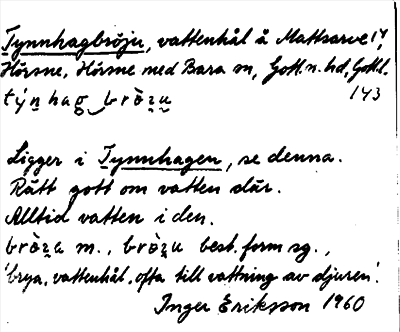 Tynnhagbröju, vattenhål å Mattsarve 1⁴,
Hörsne, Hörsne med Bara sn, Gotl. n. hd, Gotl. l.
týn̠hag‿brò̤z̠ṳ 143
Ligger i Tynnhagen, se denna.
Rätt gott om vatten där.
Alltid vatten i den.
bròz̠a m., bròz̠u best. form sg.,
'brya, vattenhål, ofta till vattning av djuren'.
Inger Eriksson 1960